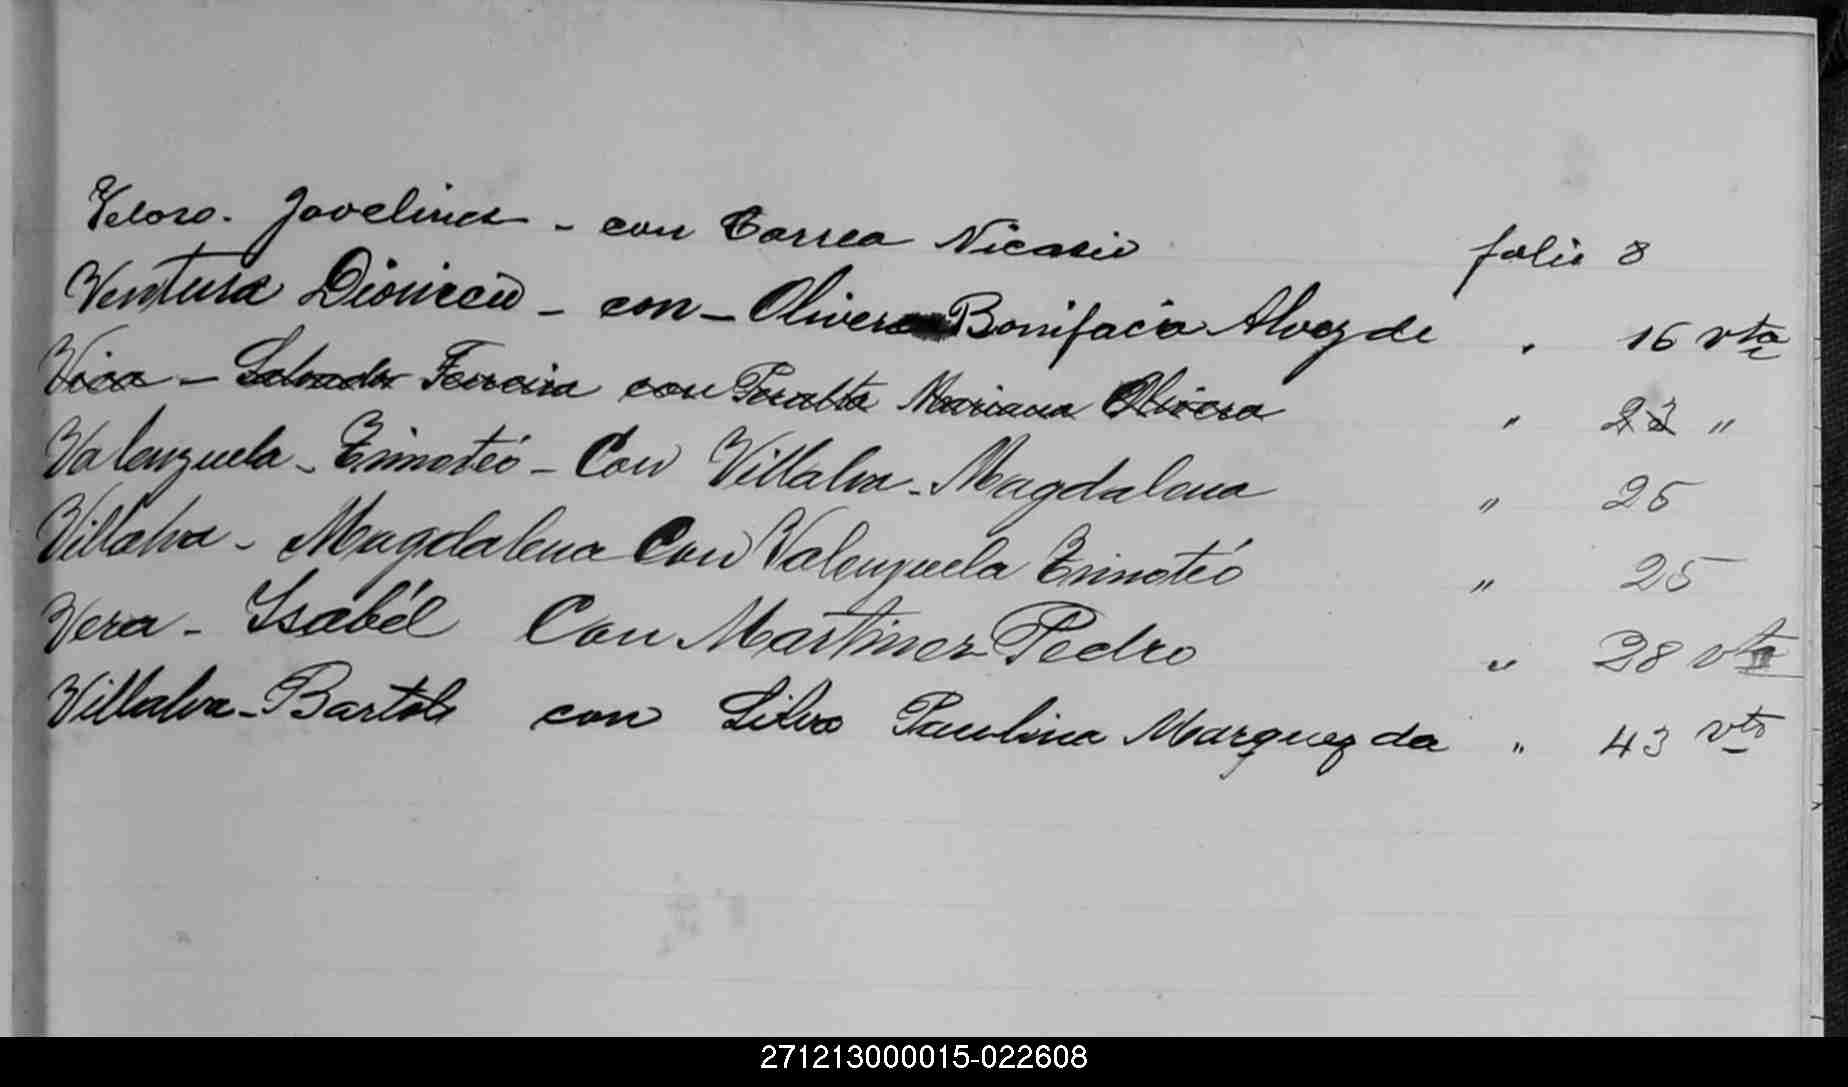 Veloso. Jovelina - con Correa Nicasio folio 8
Ventura Dionicio - con - Olivera Bonifacia Alvez de " 16 vta
Vica - Salvador Ferreira con Peralta Mariana Olivera " 23 "
Valenzuela - Timoteó - Con Villalva - Magdalena " 25
Villalva - Magdalena Con Valenzuela Timoteó " 25
Vera - Isabél Con Martinez Pedro " 28 vta
Villalva - Bartolo con Silva Paulina Marquez da " 43 vta
271213000015-022608